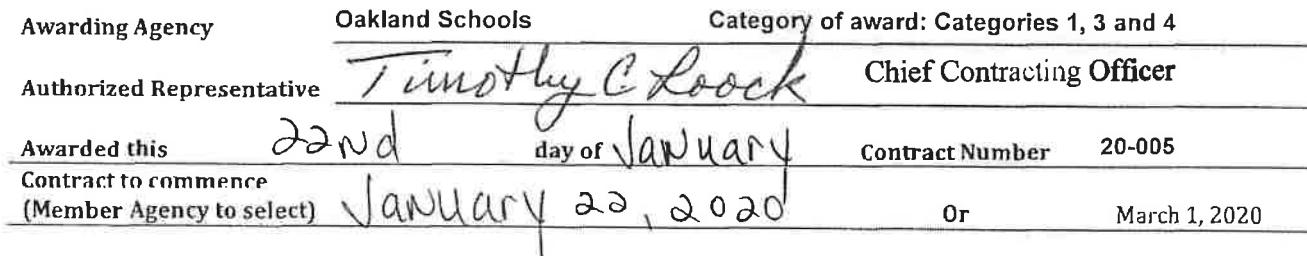 Awarding Agency Oakland Schools Category of award: Categories 1, 3 and 4
Authorized Representative Timothy C Loock Chief Contracting Officer
Awarded this 22nd day of January Contract Number 20-005
Contract to commence
(Member Agency to select) January 22, 2020 Or March 1, 2020